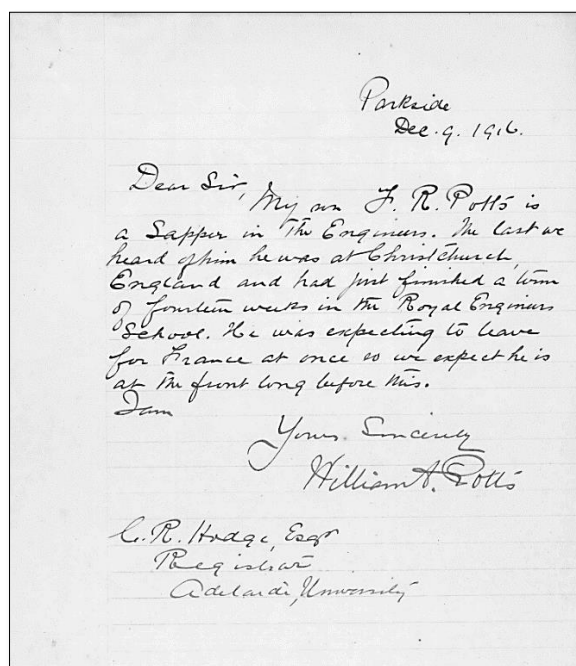 Parkside
Dec. 9. 1916.
Dear Sir,
My son F. R. Potts is
a Sapper in the Engineers. The last we
heard of him he was at Christchurch,
England and had just finished a term
of fourteen weeks in the Royal Engineers
School. He was expecting to leave
for France at once so we expect he is
at the front long before this.
I am
Yours Sincerely
William A. Potts
C. R. Hodge, Esqr
Registrar
Adelaide, University